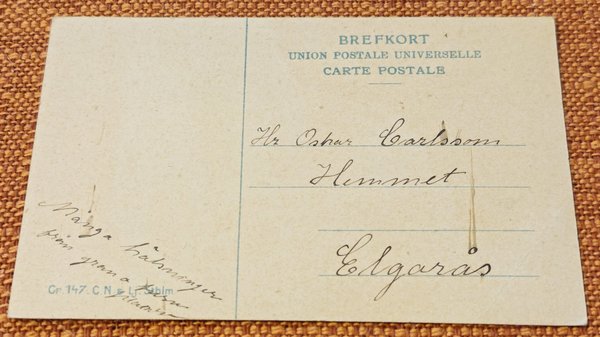 BREFKORT
UNION POSTALE UNIVERSELLE
CARTE POSTALE
Hr Oskar Carlsson
Hemmet
Elgarås
Många hälsningar
från
Gr. 147. C. N.s Lj. Sthlm